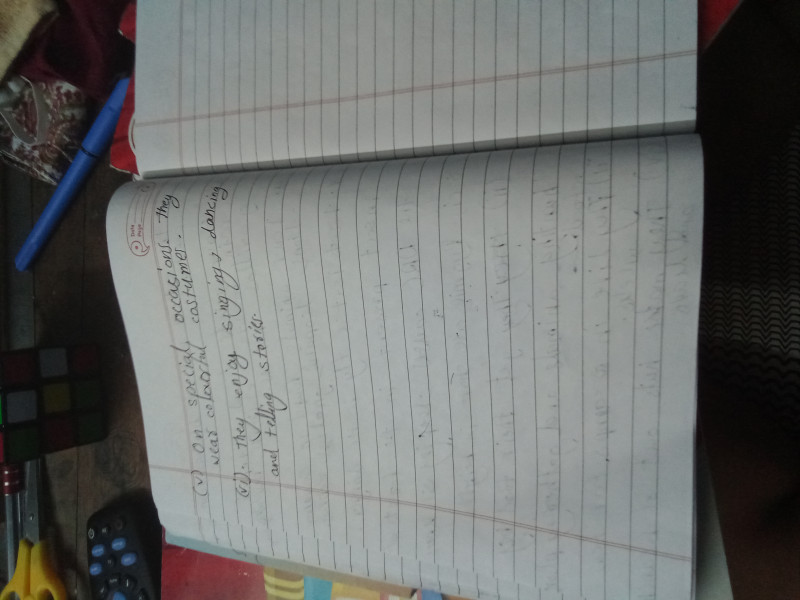 Date
Page
(v) On special occasions. They
wear colourful costumes.
(vi). They enjoy singing, dancing
and telling stories.